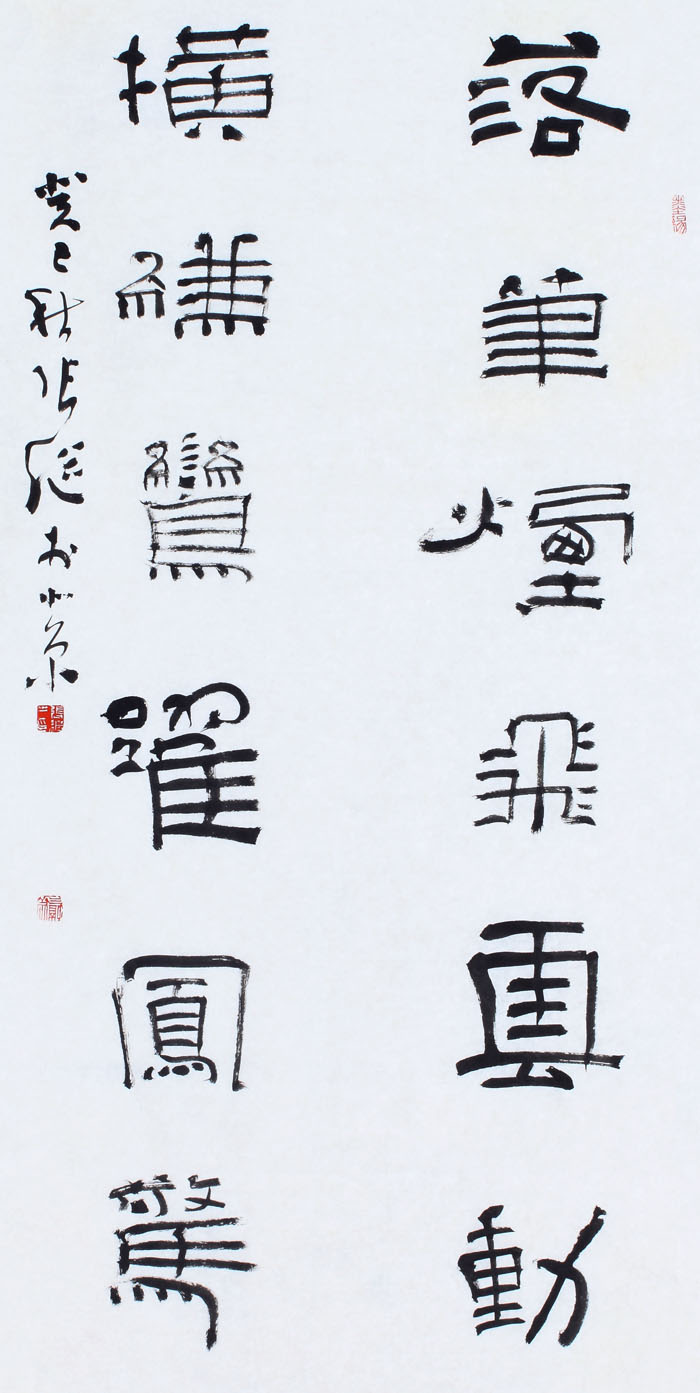 落筆煙飛雲動
橫縑鸞躍鳳驚
癸巳秋張繼於北京